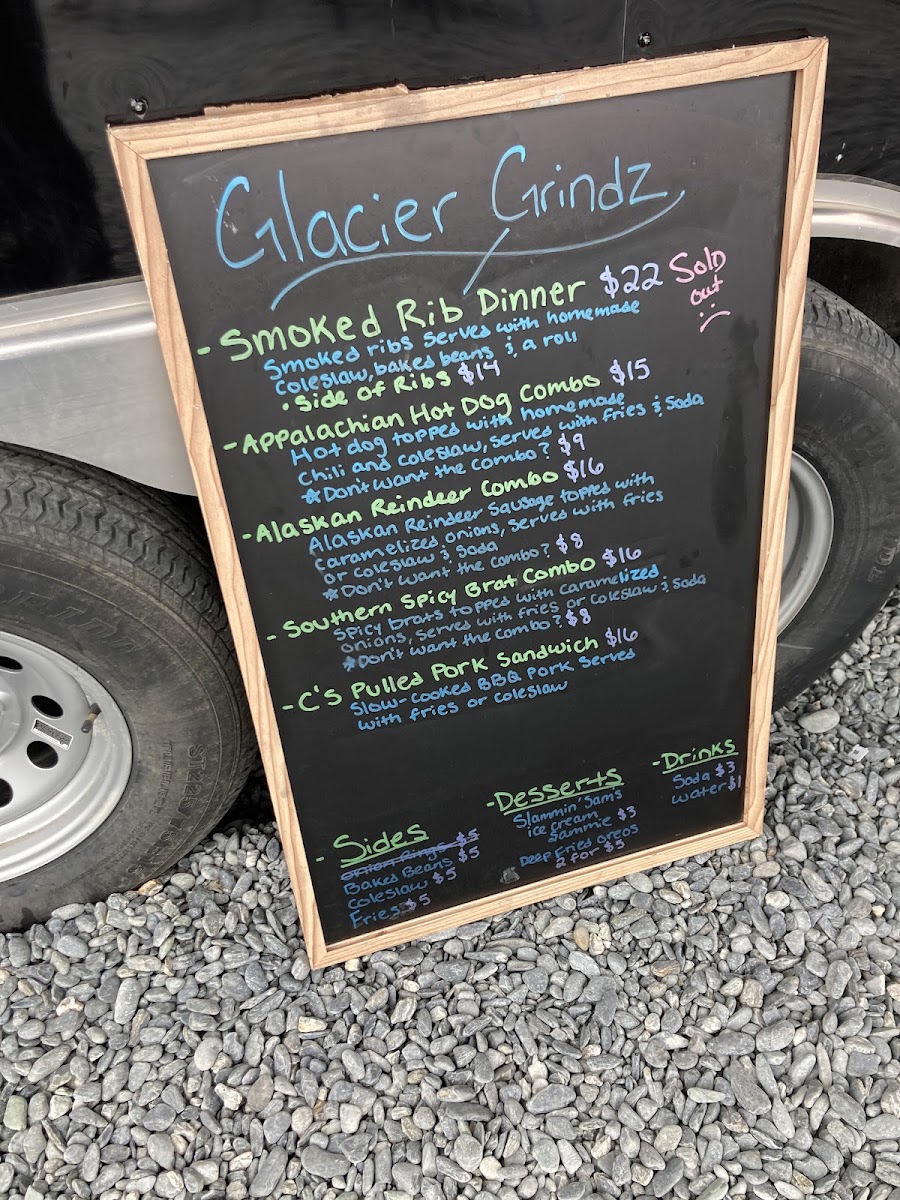 Glacier Grindz
- Smoked Rib Dinner $22 Sold out :(
Smoked ribs served with homemade
coleslaw, baked beans & a roll
• Side of Ribs $14
- Appalachian Hot Dog Combo $15
Hot dog topped with homemade
chili and coleslaw, served with fries & soda
☆Don't want the combo? $9
- Alaskan Reindeer Combo $16
Alaskan Reindeer Sausage topped with
caramelized onions, served with fries
or coleslaw & soda
☆Don't want the combo? $8
- Southern Spicy Brat Combo $16
Spicy brats topped with caramelized
onions, served with fries or coleslaw & soda
☆Don't want the combo? $8
- C's Pulled Pork Sandwich $16
Slow-cooked BBQ pork served
with fries or coleslaw
- Sides
Onion Rings $5
Baked Beans $5
coleslaw $5
Fries $5
- Desserts
Slammin' Sam's
ice cream
Sammie $3
Deep Fried Oreos
2 for $5
- Drinks
Soda $3
water $1